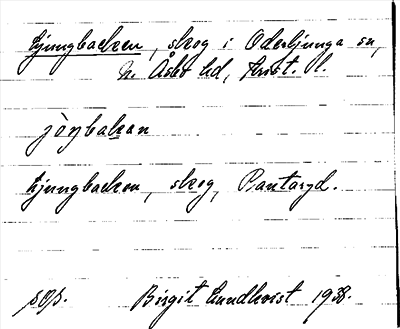 Ljungbacken, skog i Oderljunga sn,
N. Åsbo hd, Krist. l.
jöŋbakan
Ljungbacken, skog, Rantaryd.
sös. Birgit Lundkvist 1938.